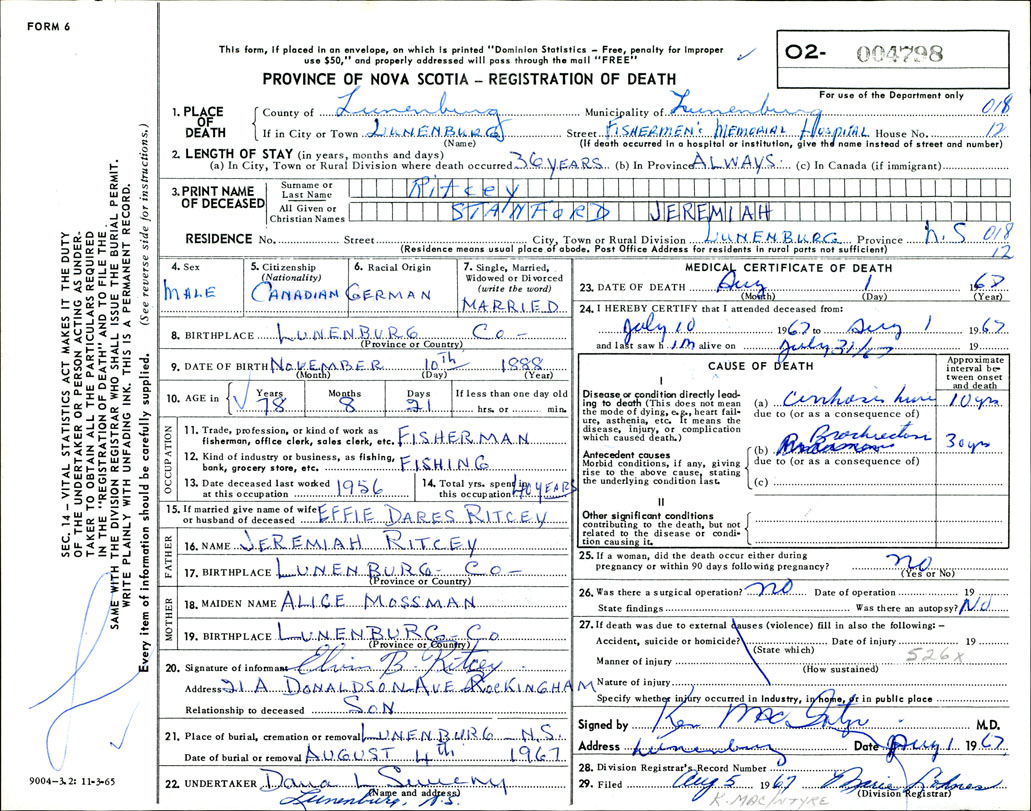 FORM 6
This form, if placed in an envelope, on which is printed "Dominion Statistics – Free, penalty for improper
use $50," and properly addressed will pass through the mail "FREE"
PROVINCE OF NOVA SCOTIA – REGISTRATION OF DEATH
O2- 004798
For use of the Department only
1. PLACE OF DEATH
County of Lunenburg Municipality of Lunenburg 018
If in City or Town LUNENBURG Street FISHERMEN'S MEMORIAL HOSPITAL House No. 12
(Name) (If death occurred in a hospital or institution, give the name instead of street and number)
2. LENGTH OF STAY (in years, months and days)
(a) In City, Town or Rural Division where death occurred 36 YEARS (b) In Province ALWAYS. (c) In Canada (if immigrant)
3. PRINT NAME OF DECEASED
Surname or Last Name Ritcey
All Given or Christian Names STANFORD JEREMIAH
RESIDENCE No. Street City, Town or Rural Division LUNENBURG Province N.S 018
(Residence means usual place of abode. Post Office Address for residents in rural parts not sufficient) 12
4. Sex MALE
5. Citizenship (Nationality) CANADIAN
6. Racial Origin GERMAN
7. Single, Married, Widowed or Divorced (write the word) MARRIED
8. BIRTHPLACE LUNENBURG CO-
(Province or Country)
9. DATE OF BIRTH NOVEMBER 10th 1888
(Month) (Day) (Year)
10. AGE in Years 78 Months 8 Days 21 If less than one day old hrs. or min.
OCCUPATION
11. Trade, profession, or kind of work as
fisherman, office clerk, sales clerk, etc. FISHERMAN
12. Kind of industry or business, as fishing,
bank, grocery store, etc. FISHING
13. Date deceased last worked at this occupation 1956
14. Total yrs. spent in this occupation 40 YEARS
15. If married give name of wife
or husband of deceased EFFIE DARES RITCEY
FATHER
16. NAME JEREMIAH RITCEY
17. BIRTHPLACE LUNENBURG- CO-
(Province or Country)
MOTHER
18. MAIDEN NAME ALICE MOSSMAN
19. BIRTHPLACE LUNENBURG- CO
(Province or Country)
20. Signature of informant B. Ritcey
Address 21 A DONALDSON AVE ROCKINGHAM
Relationship to deceased SON
21. Place of burial, cremation or removal LUNENBURG - N.S.
Date of burial or removal AUGUST 4th 1967
22. UNDERTAKER Dana L Sweeny
(Name and address)
Lunenburg, N.S.
MEDICAL CERTIFICATE OF DEATH
23. DATE OF DEATH Aug 1 67
(Month) (Day) (Year)
24. I HEREBY CERTIFY that I attended deceased from:
July 10 1967 to Aug 1 1967
and last saw him alive on July 31/67 19
CAUSE OF DEATH
Approximate interval between onset and death
I
Disease or condition directly leading to death (This does not mean the mode of dying, e.g., heart failure, asthenia, etc. It means the disease, injury, or complication which caused death.)
(a) Cirrhosis liver 10 yrs
due to (or as a consequence of)
Antecedent causes
Morbid conditions, if any, giving rise to the above cause, stating the underlying condition last.
(b) 30 yrs
due to (or as a consequence of)
(c)
II
Other significant conditions
contributing to the death, but not related to the disease or condition causing it.
25. If a woman, did the death occur either during
pregnancy or within 90 days following pregnancy? no
(Yes or No)
26. Was there a surgical operation? no Date of operation 19
State findings Was there an autopsy? No
27. If death was due to external causes (violence) fill in also the following: –
Accident, suicide or homicide? Date of injury 19
(State which) 526x
Manner of injury
(How sustained)
Nature of injury
Specify whether injury occurred in Industry, in home, or in public place
Signed by Ken MacIntyre M.D.
Address Lunenburg Date Aug 1 1967
28. Division Registrar's Record Number
29. Filed Aug 5 1967
(Division Registrar)
K. MACINTYRE
SEC. 14 – VITAL STATISTICS ACT MAKES IT THE DUTY
OF THE UNDERTAKER OR PERSON ACTING AS UNDER-
TAKER TO OBTAIN ALL THE PARTICULARS REQUIRED
IN THE "REGISTRATION OF DEATH" AND TO FILE THE
SAME WITH THE DIVISION REGISTRAR WHO SHALL ISSUE THE BURIAL PERMIT.
WRITE PLAINLY WITH UNFADING INK. THIS IS A PERMANENT RECORD.
Every item of information should be carefully supplied. (See reverse side for instructions.)
9004-3.2: 11-3-65